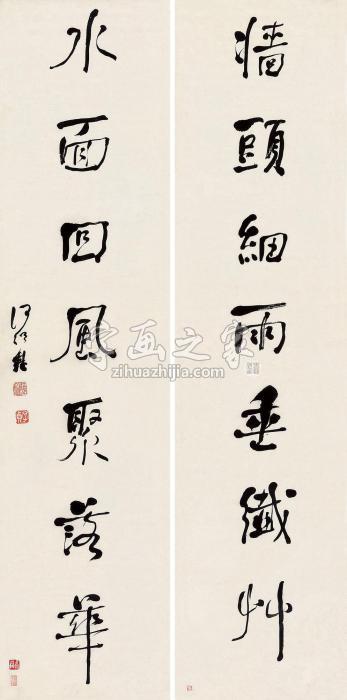 牆頭細雨垂纖艸
水面回風聚落華
何紹基
字画之家
zihuazhijia.com